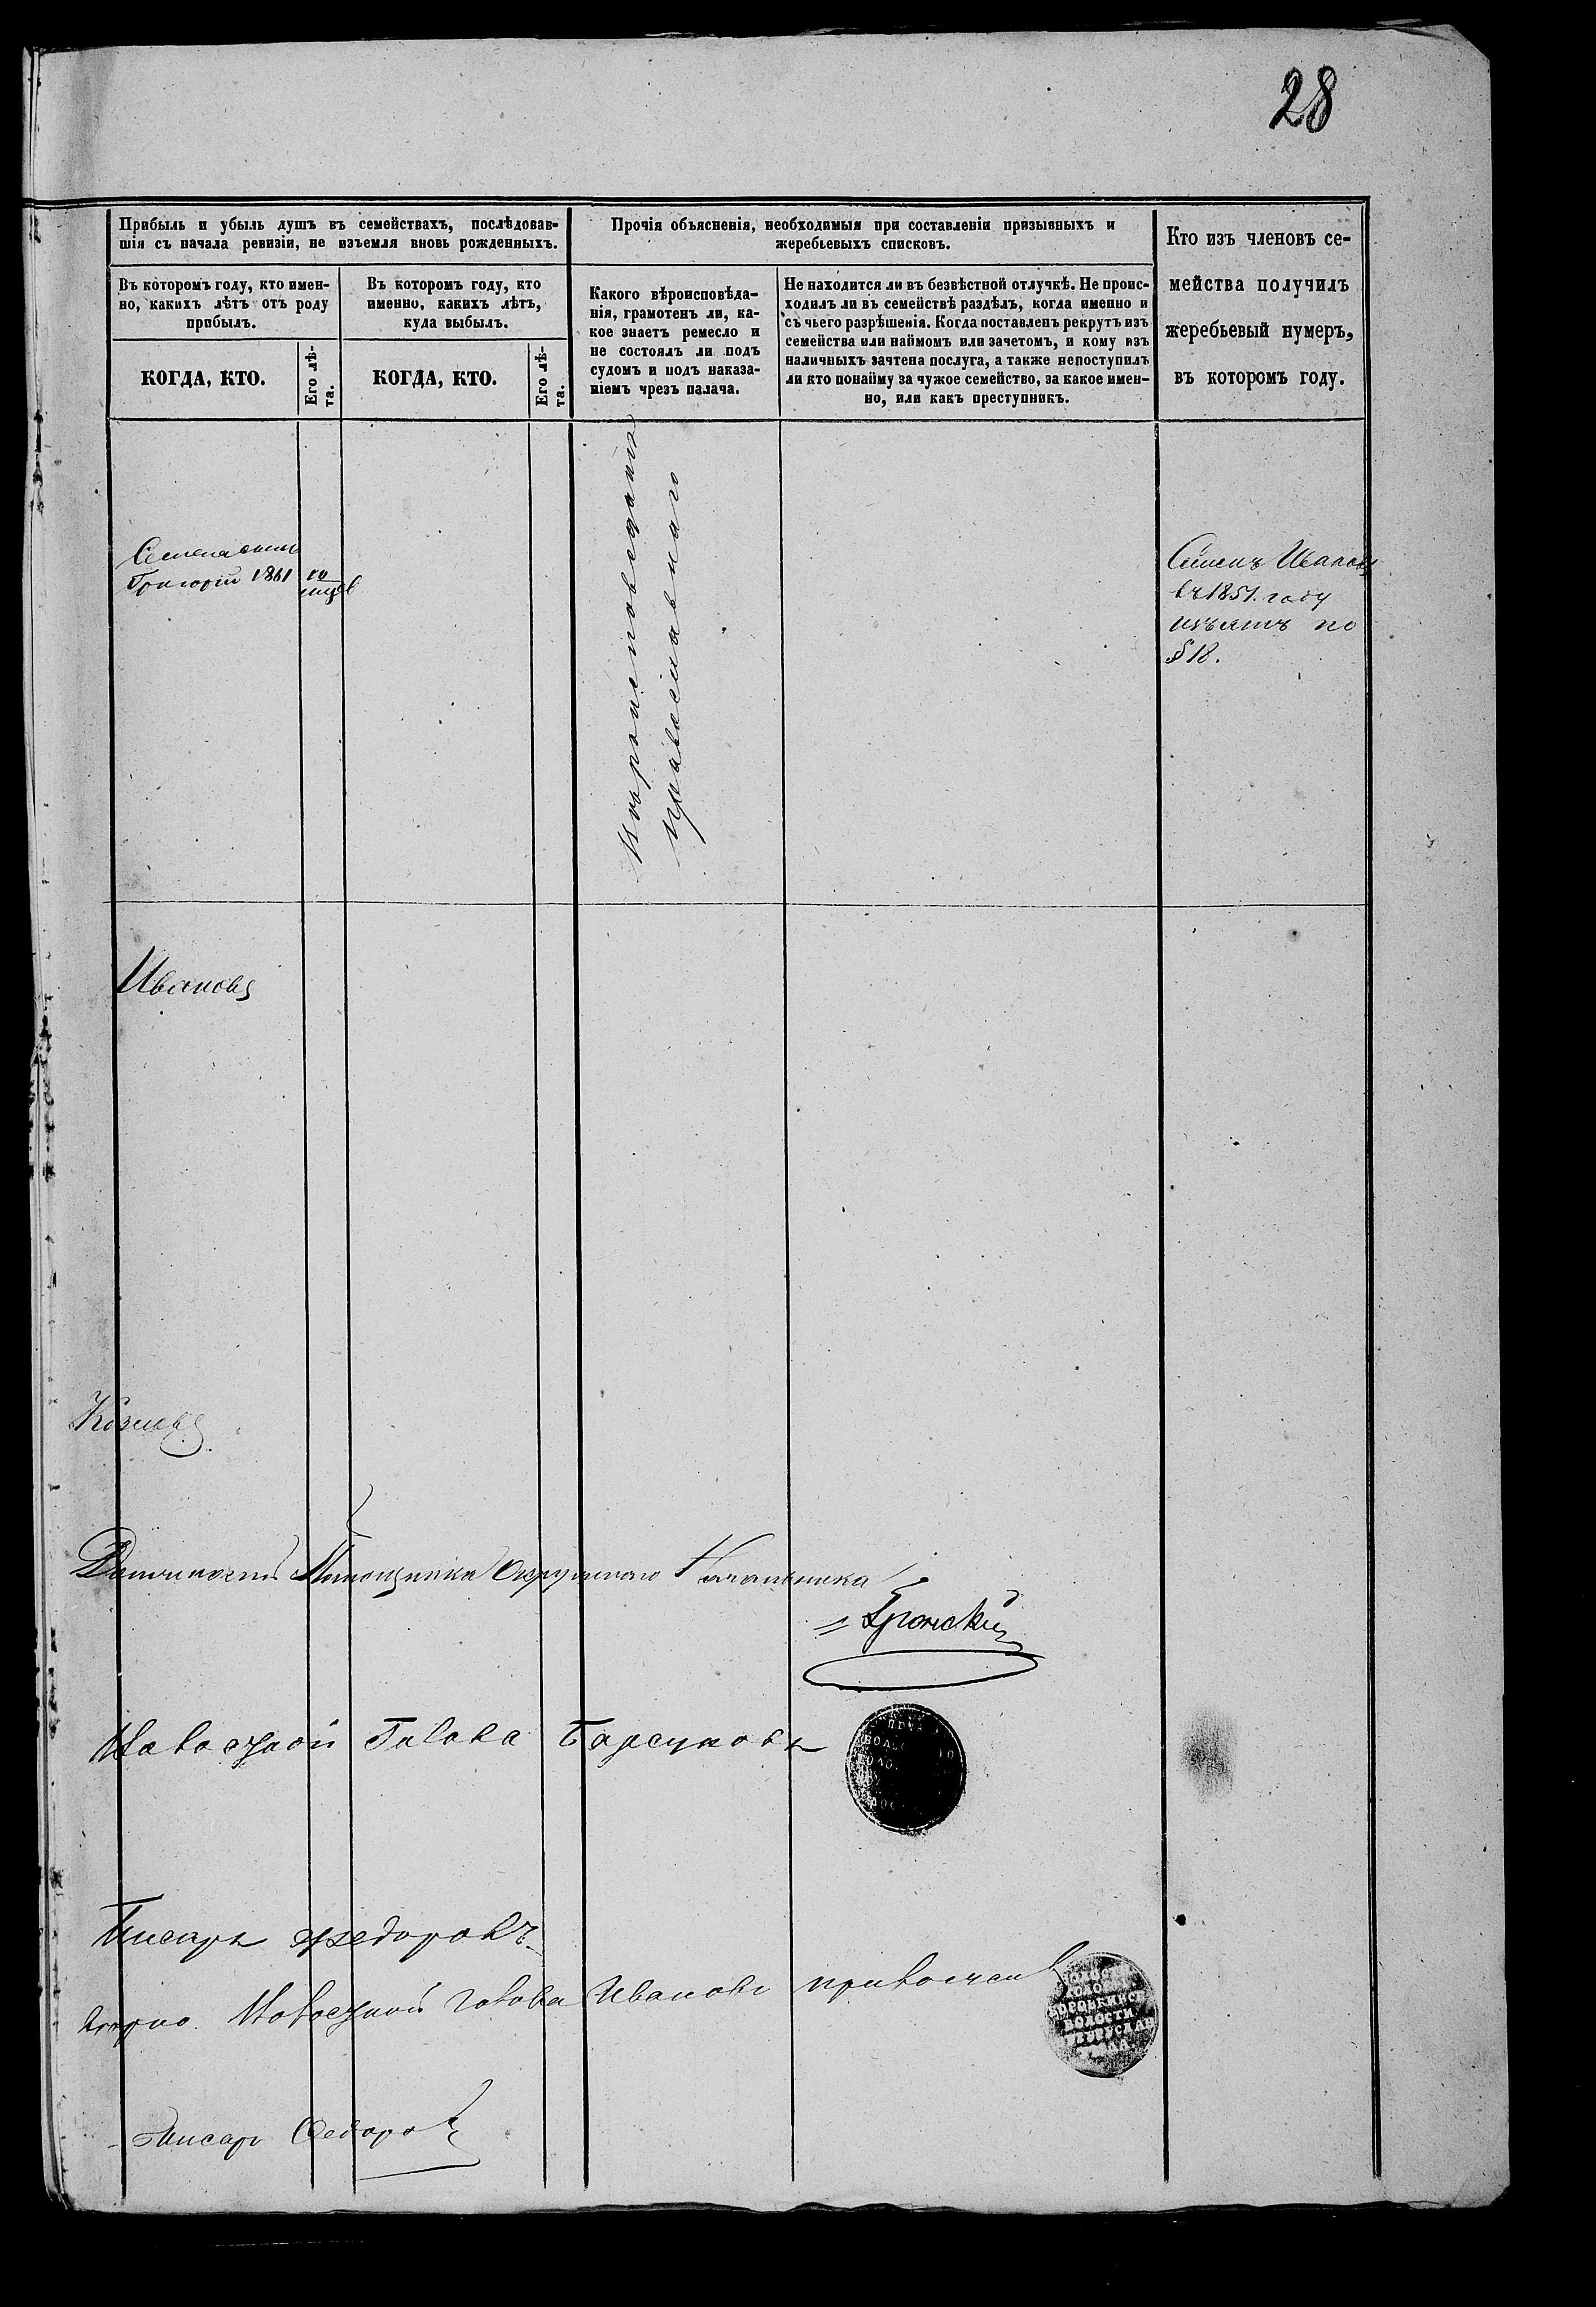 28
Прибыль и убыль душъ въ семействахъ, послѣдовав-
шія съ начала ревизіи, не изъемля вновь рожденныхъ.
Въ которомъ году, кто имен-
но, какихъ лѣтъ отъ роду
прибылъ.
КОГДА, КТО.
Его лѣ-
та.
Въ которомъ году, кто
именно, какихъ лѣтъ,
куда выбылъ.
КОГДА, КТО.
Его лѣ-
та.
Прочія объясненія, необходимыя при составленіи призывныхъ и
жеребьевыхъ списковъ.
Какого вѣроисповѣда-
нія, грамотенъ ли, ка-
кое знаетъ ремесло и
не состоялъ ли подъ
судомъ и подъ наказа-
ніемъ чрезъ палача.
Не находится ли въ безвѣстной отлучкѣ. Не проис-
ходилъ ли въ семействѣ раздѣлъ, когда именно и
съ чьего разрѣшенія. Когда поставленъ рекрутъ изъ
семейства или наймомъ или зачетомъ, и кому изъ
наличныхъ зачтена послуга, а также непоступилъ
ли кто понайму за чужое семейство, за какое имен-
но, или какъ преступникъ.
Кто изъ членовъ се-
мейства получилъ
жеребьевый нумеръ,
въ которомъ году.
Семена сынъ
Григорій 1861
вѣроисповеданія
православнаго
Семенъ Ивановъ
въ 1851. году
изъятъ по
§ 18.
Ивановъ
Козловъ
Помощника Окружнаго Начальника
Голова Барсуковъ
Писарь Федоровъ
Голова Ивановъ
Писарь Федоровъ
ВОЛОСТИ